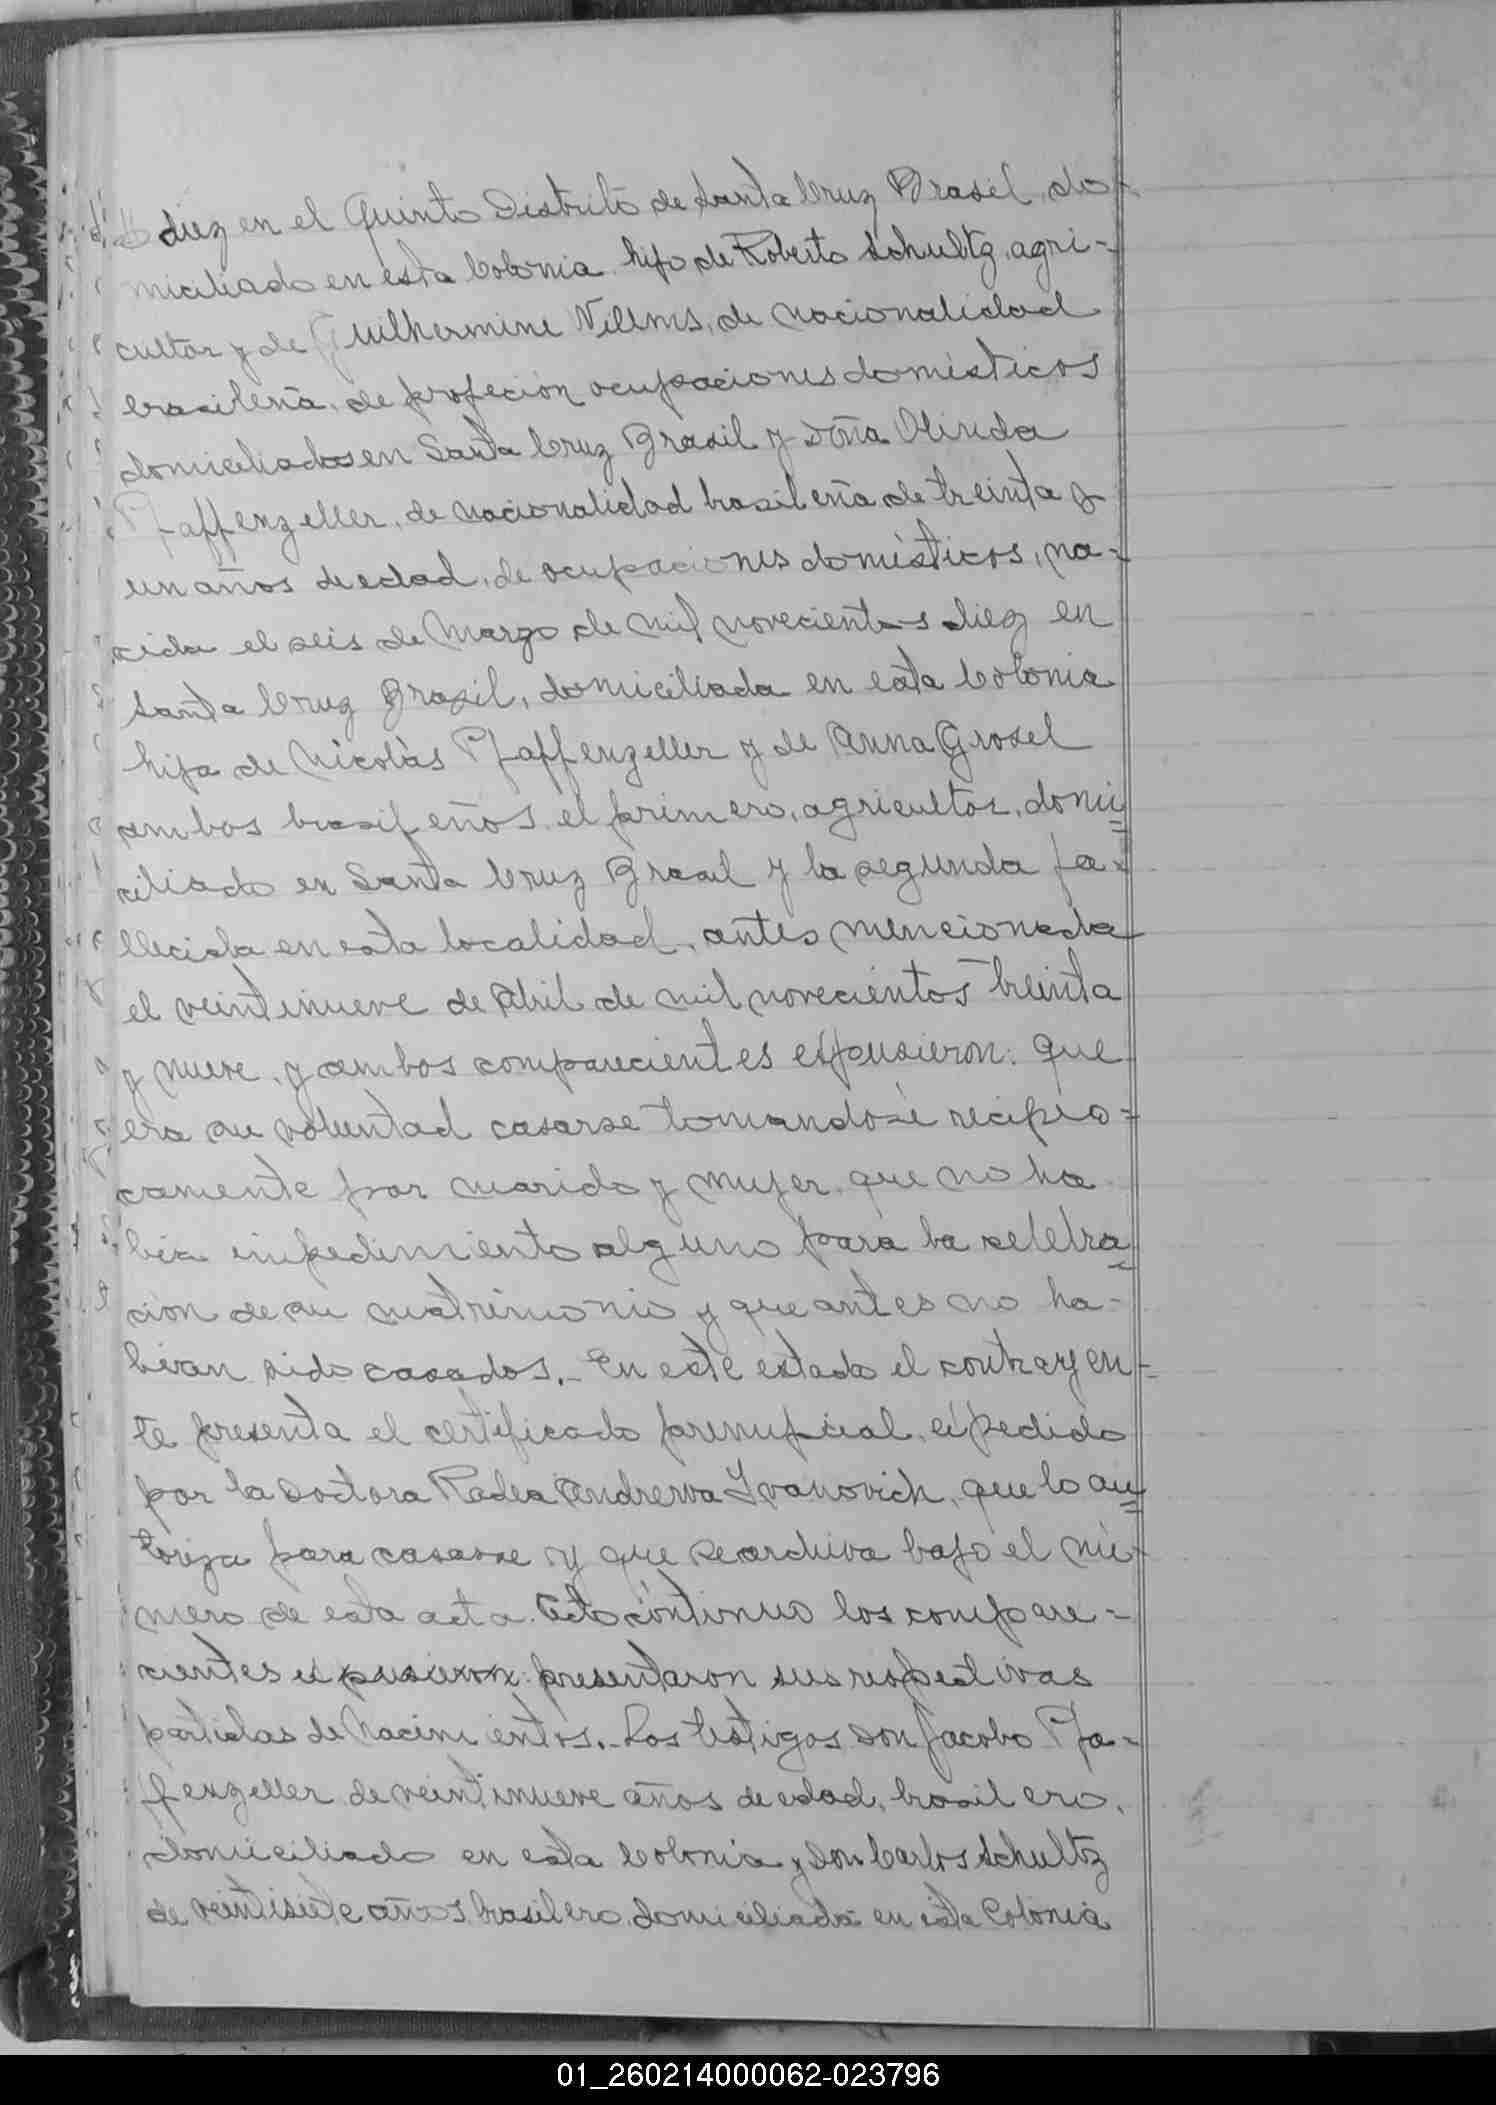 diez en el Quinto Distrito de Santa Cruz Brasil, do-
miciliado en esta Colonia hijo de Roberto Schultz, agri-
cultor y de Guilhermine Villms, de nacionalidad
brasileña, de profeción ocupaciones domésticos
domiciliados en Santa Cruz Brasil y doña Olinda
Pfaffenzeller, de nacionalidad brasileña de treinta y
un años de edad, de ocupaciones domésticos, na-
cida el seis de Marzo de mil novecientos diez en
Santa Cruz Brasil, domiciliada en esta Colonia
hija de Nicolás Pfaffenzeller y de Anna Grosel
ambos brasileños, el primero, agricultor, domi
ciliado en Santa Cruz Brasil y la segunda fa-
llecida en esta localidad, antes mencionada
el veintinueve de Abril de mil novecientos treinta
y nueve, y ambos comparecientes expusieron: que
era su voluntad casarse tomandose recipro-
camente por marido y mujer, que no ha
bia impedimiento alguno para la selebra
cion de su matrimonio y que antes no ha-
bian sido casados.- En este estado el contrayen-
te presenta el certificado prenupcial, expedido
por la Doctora Radea Andrewa Ivanovich, que lo au
toriza para casarse y que se archiva bajo el nú-
mero de esta acta. Acto continuo los compare-
cientes expusieron: presentaron sus respectivas
partidas de Nacimientos.- Los testigos don Jacobo Pfa-
ffenzeller de veintinueve años de edad, brasilero,
domiciliado en esta Colonia y don Carlos Schultz
de veintisiete años, brasilero, domiciliado en esta Colonia
01_260214000062-023796